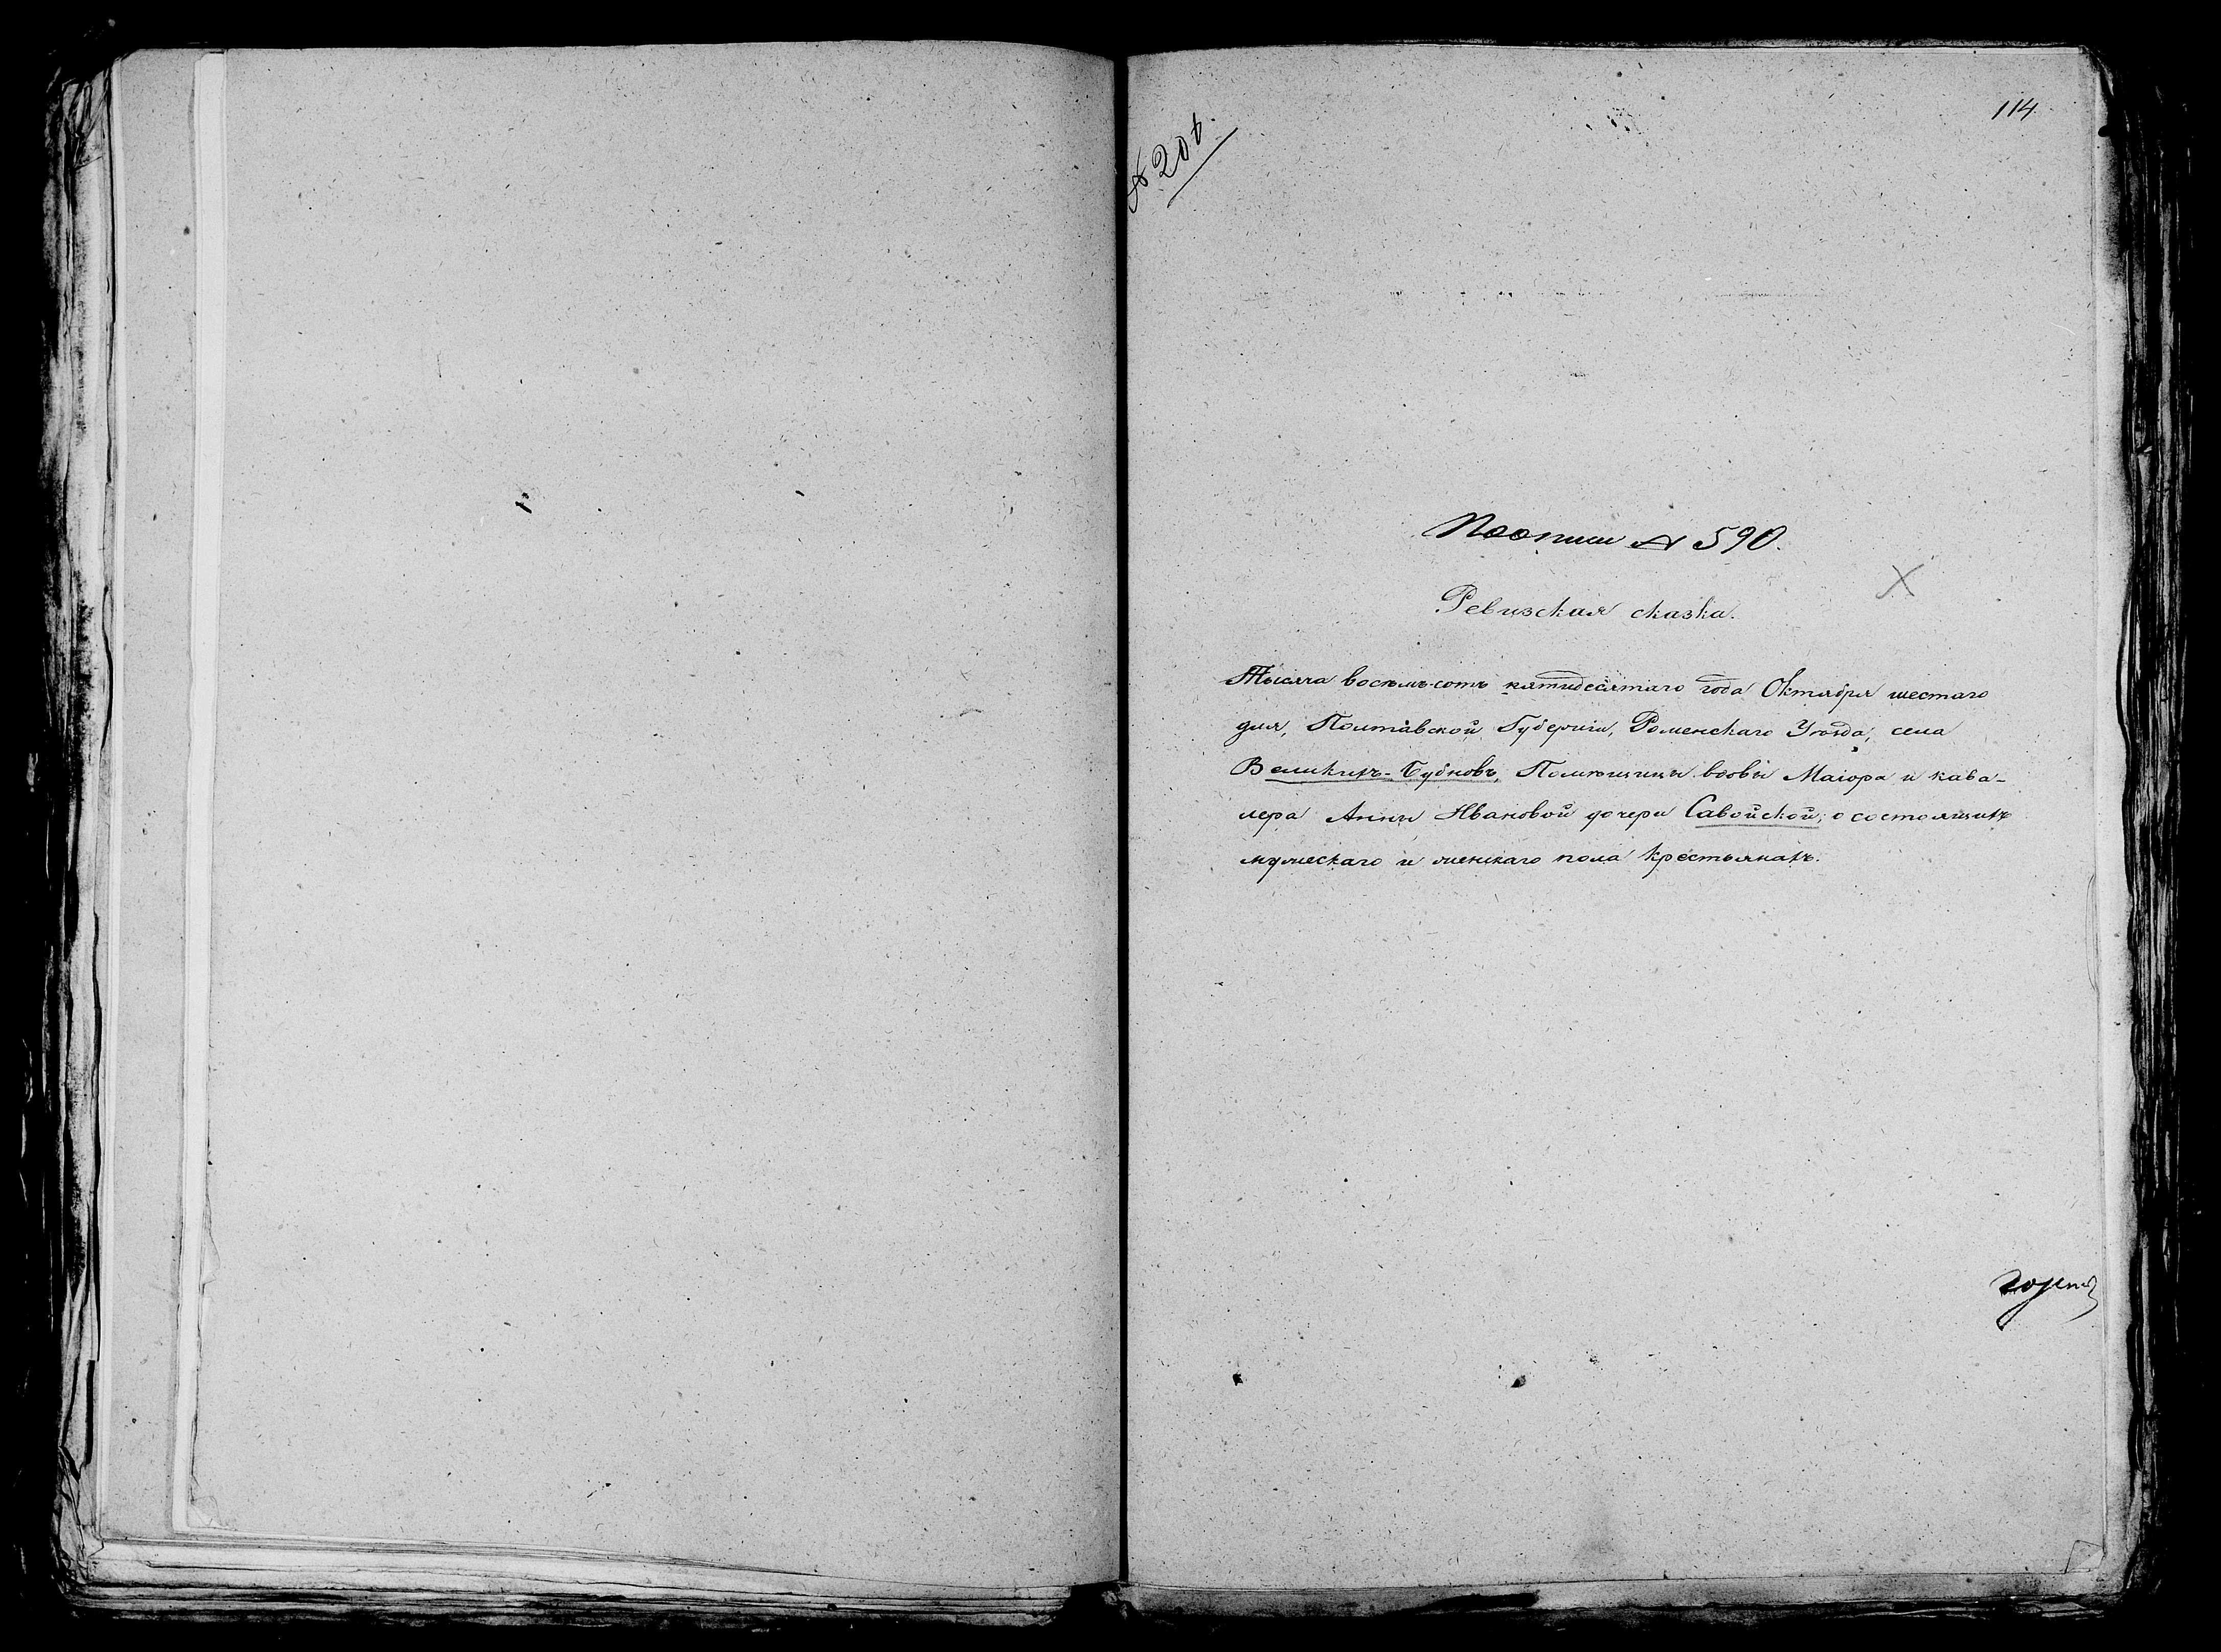 114.
По описи № 590.
Ревизская сказка.
Тысяча восемь-сотъ пятидесятаго года Октября шестаго
дня, Полтавской Губерніи, Роменскаго Уѣзда, села
Великихъ-Бубновъ, Помѣщицы вдовы Маіора и кава-
лера Анны Ивановой дочери Савойской, о состоящихъ
мужескаго и женскаго пола крестьянахъ.